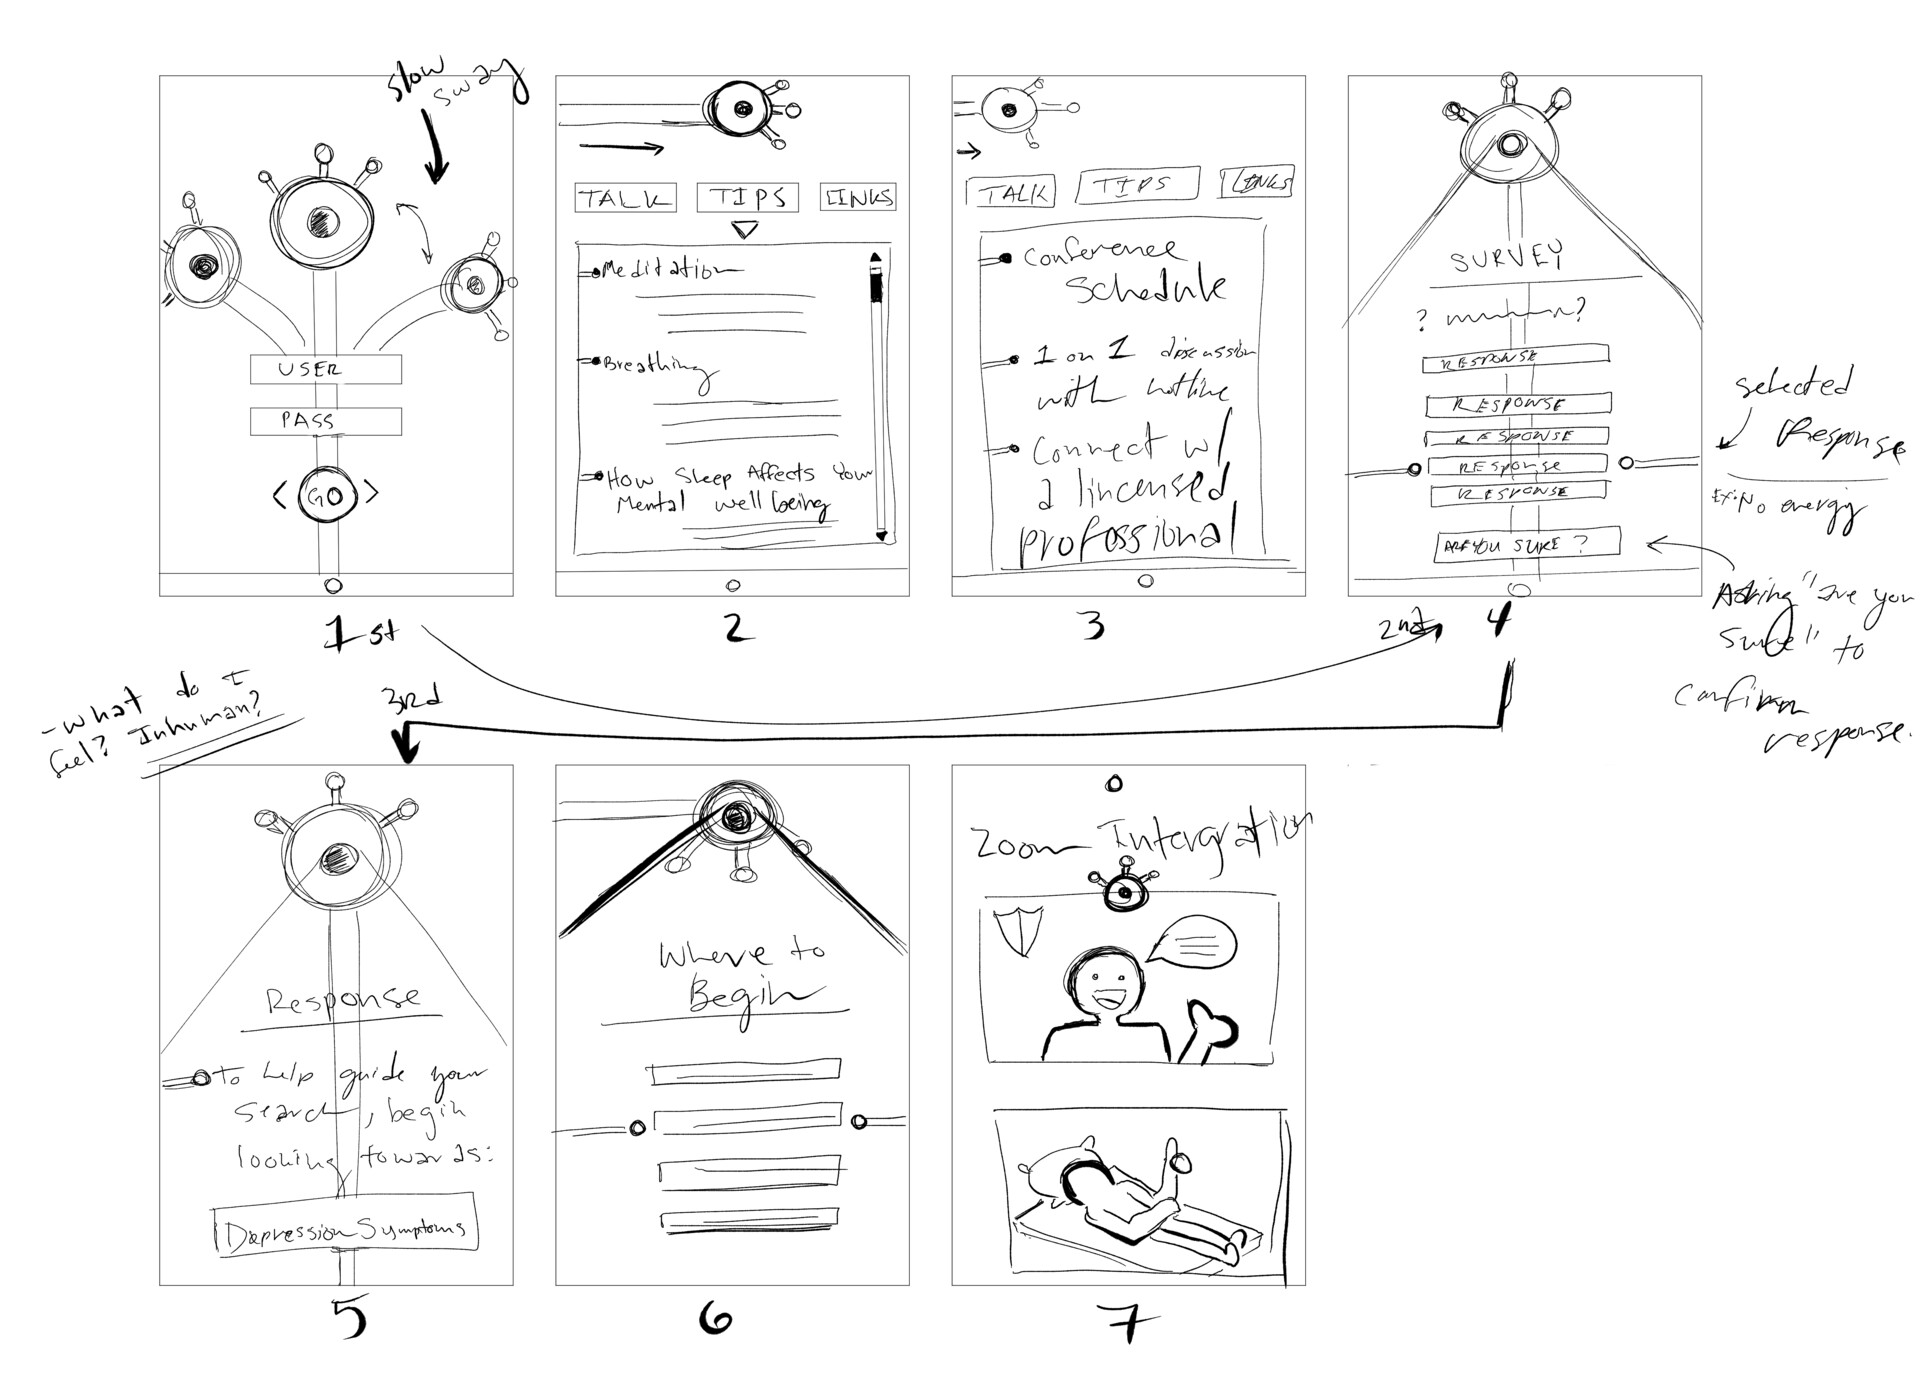 slow
sway
USER
PASS
< GO >
1st
TALK TIPS LINKS
Meditation
Breathing
How Sleep Affects Your
Mental well being
2
TALK TIPS LINKS
Conference
Schedule
1 on 1 discussion
with hotline
Connect w/
a lincensed
professional
3
SURVEY
? ?
RESPONSE
RESPONSE
RESPONSE
RESPONSE
RESPONSE
ARE YOU SURE ?
2nd 4
selected
Response
Ex: No energy
Asking "are you
sure" to
confirm
response.
-What do I
feel? Inhuman?
3rd
Response
To help guide your
search, begin
looking towards:
Depression Symptoms
5
Where to
Begin
6
Zoom Intergration
7